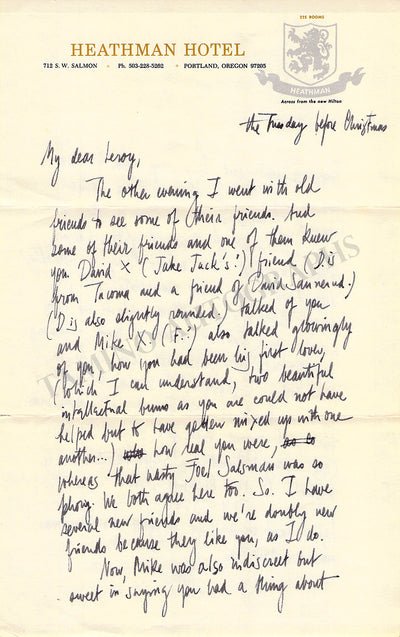 225 ROOMS
HEATHMAN HOTEL
712 S. W. SALMON • Ph. 503-228-5262 • PORTLAND, OREGON 97205
HEATHMAN
Across from the new Hilton
the Tuesday before Christmas
My dear Leroy,
The other evening I went with old
friends to see some of their friends. And
some of their friends and one of them knew
you. David X (Jake Jack's!) friend (D is
from Tacoma and a friend of David Sannerud.)
(D is also slightly rounded), talked of you
and Mike X. (F!?) also talked glowingly
of you, how you had been his first lover,
(which I can understand, two beautiful
intellectual bums as you are could not have
helped but to have gotten mixed up with one
another...) how real you were,
whereas that nasty Joel Salsman was so
phony. We both agree here too. So. I have
several new friends and we're doubly new
friends because they like you, as I do.
Now, Mike was also indiscreet but
sweet in saying you had a thing about
TAMINO AUTOGRAPHS